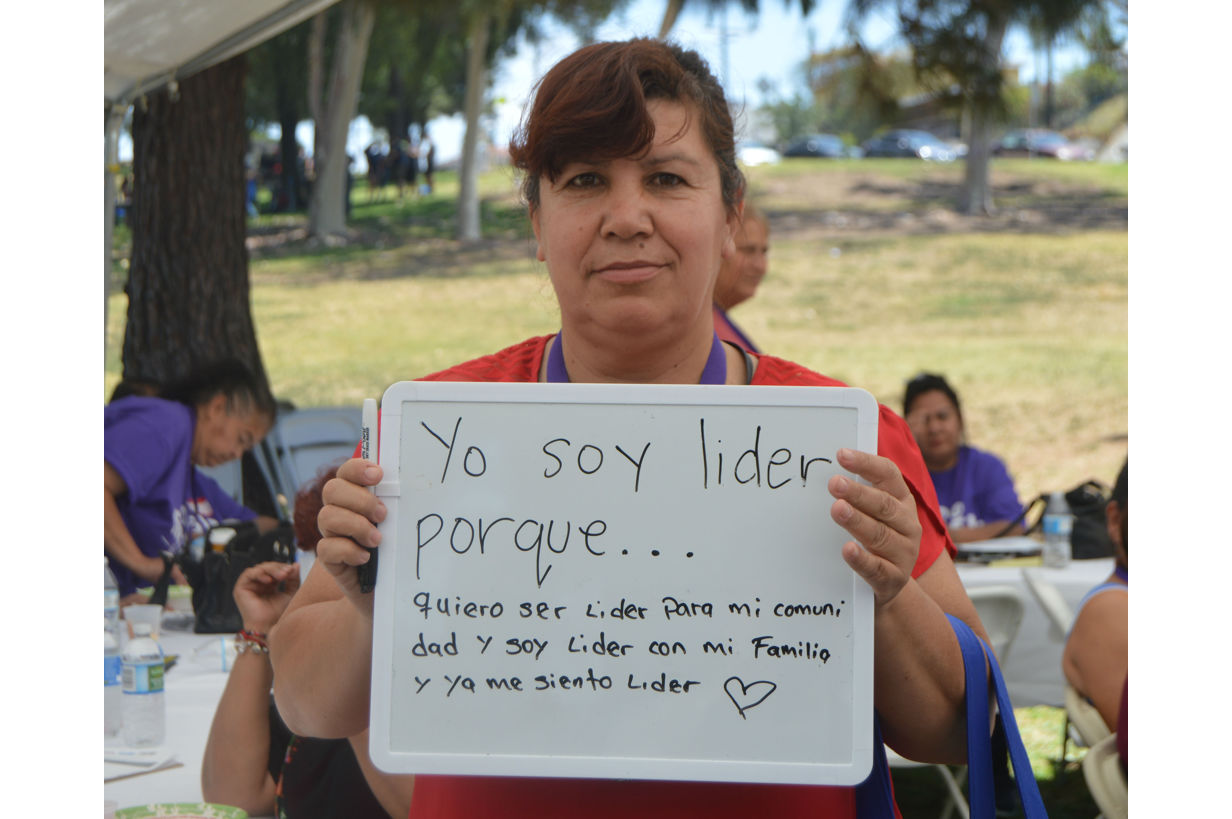 Yo soy lider
porque...
quiero ser Lider Para mi comuni
dad y soy Lider con mi Familia
y ya me siento Lider